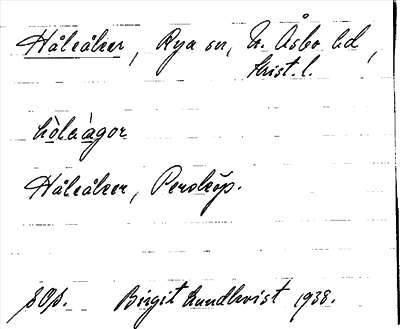 Håleåker, Rya sn, N. Åsbo hd,
Krist. l.
hòleágor
Håleåker, Perstorp.
SOp. Birgit Lundkvist 1938.